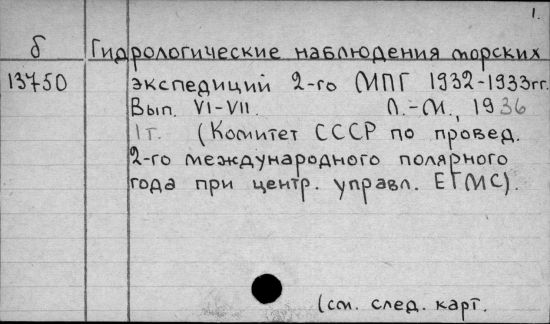 1.
б Гидрологические наблюдения морских
13750 экспедиций 2-го МПГ 1932-1933гг.
Вып. VI-VII. Л.-М., 1936
1г. (Комитет СССР по провед.
2-го международного полярного
года при центр. управл. ЕГМС).
(см. след. карт.